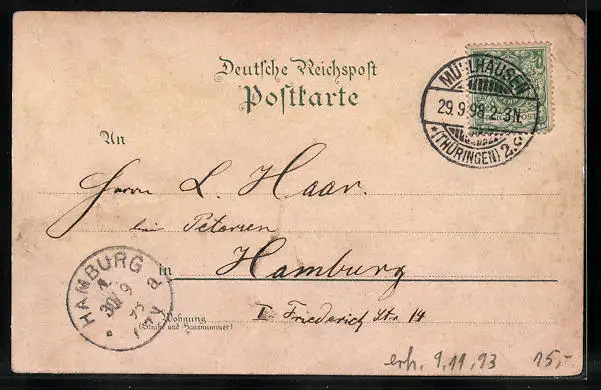 Deutsche Reichspost
Postkarte
MÜHLHAUSEN
29.9.98.2-3N.
*(THÜRINGEN)2.c*
An
Herrn L. Haar.
bei Petersen
in Hamburg
Wohnung
(Straße und Hausnummer)
I. Friederich Str. 14
HAMBURG
30/9
a
erh. 9.11.93
15,-